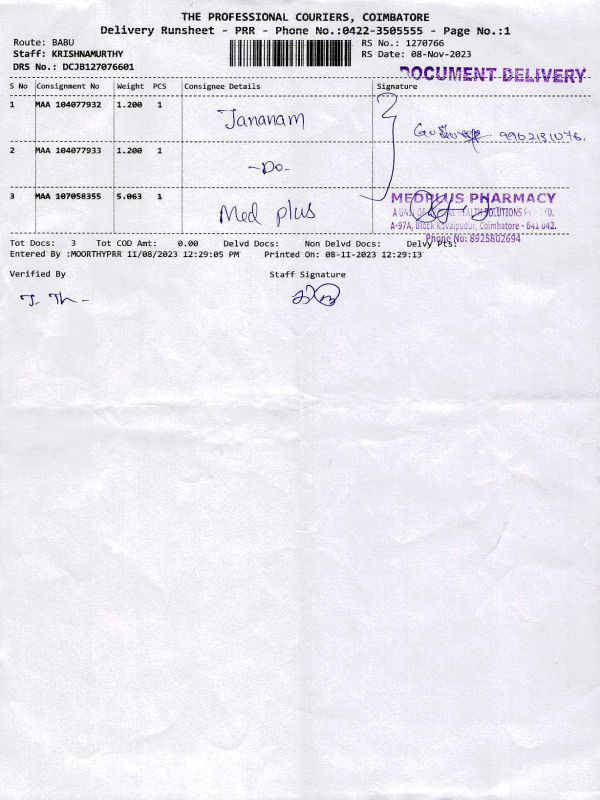 THE PROFESSIONAL COURIERS, COIMBATORE
Delivery Runsheet - PRR - Phone No.:0422-3505555 - Page No.:1
Route: BABU
RS No.: 1270766
Staff: KRISHNAMURTHY
RS Date: 08-Nov-2023
DRS No.: DCJB127076601
DOCUMENT DELIVERY
S No Consignment No Weight PCS Consignee Details Signature
1 MAA 104077932 1.200 1 Jananam
2 MAA 104077933 1.200 1 -Do-
3 MAA 107058355 5.063 1 Med plus
MEDPLUS PHARMACY
A-97A, Block Kovaipudur, Coimbatore - 641 042.
Phone No: 8925802694
Tot Docs: 3 Tot COD Amt: 0.00 Delvd Docs: Non Delvd Docs: Delvy Pts:
Entered By :MOORTHYPRR 11/08/2023 12:29:05 PM Printed On: 08-11-2023 12:29:13
Verified By Staff Signature